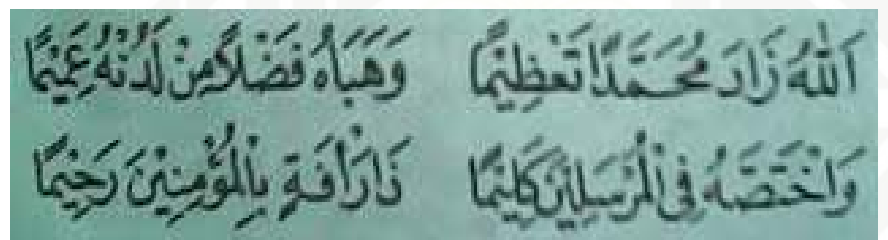 اَللهُ زَادَ مُحَمَّدًا تَعْظِيْمًا وَحَبَاهُ فَضْلًا مِنْ لَدُنْهُ عَمِيْمًا
وَاخْتَصَّهُ فِى الْمُرْسَلِيْنَ كَلِيْمًا ذَا رَأْفَةٍ بِالْمُؤْمِنِيْنَ رَحِيْمًا